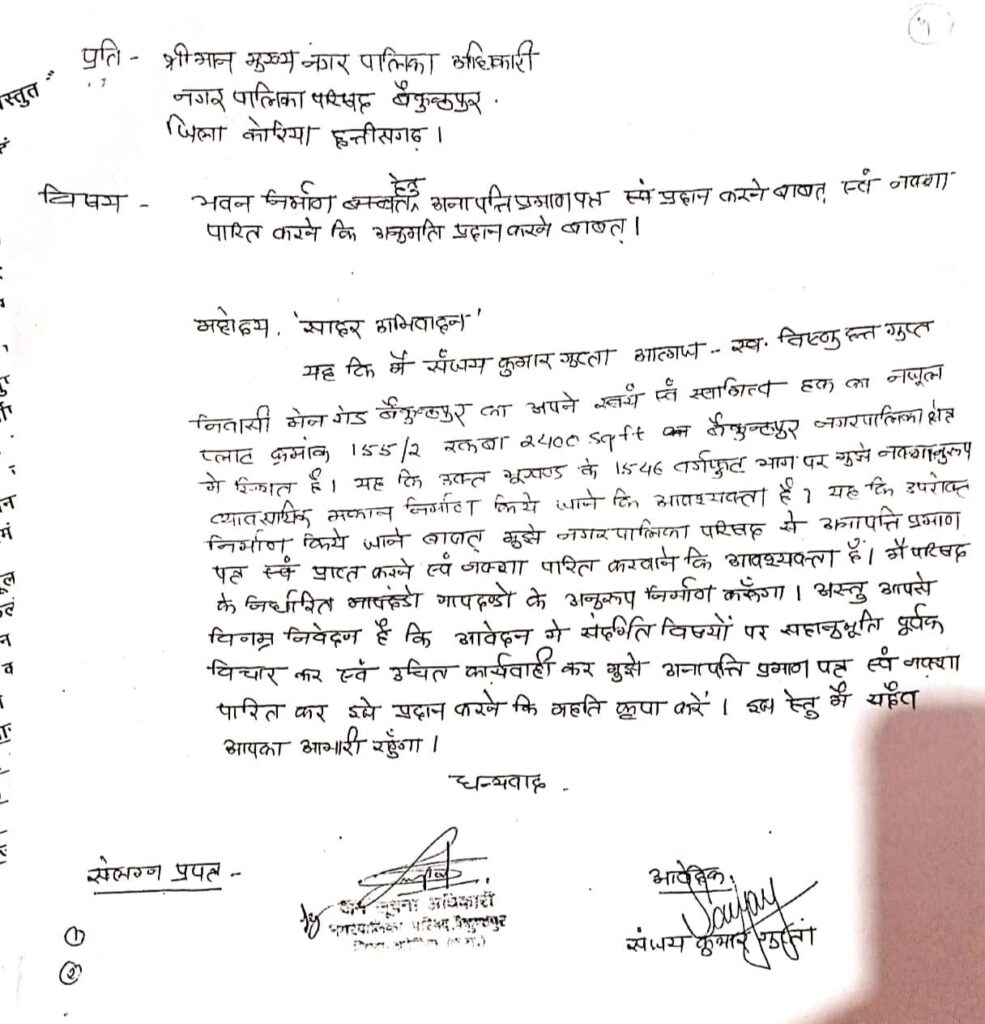 प्रति - श्रीमान मुख्य नगर पालिका अधिकारी
स्तुत
नगर पालिका परिषद बैकुण्ठपुर.
जिला कोरिया छत्तीसगढ़ ।
विषय - भवन निर्माण हेतु अनापत्ति प्रमाण पत्र एवं प्रदान करने बाबत् एवं नक्शा
पारित करने कि अनुमति प्रदान करने बाबत् ।
महोदय, 'सादर अभिवादन'
यह कि मैं संजय कुमार गुप्ता आत्मज - स्व. विष्णु दत्त गुप्त
निवासी मेन रोड बैकुण्ठपुर का अपने स्वयं एवं स्वामित्व हक का नजूल
प्लाट क्रमांक 155/2 रकबा 2400 sqft का बैकुण्ठपुर नगरपालिका क्षेत्र
मे स्थित है। यह कि उक्त भूखण्ड के 1546 वर्गफुट भाग पर मुझे नक्शानुरूप
व्यावसायिक मकान निर्माण किये जाने कि आवश्यक्ता है ? यह कि उपरोक्त
निर्माण किये जाने बाबत् मुझे नगरपालिका परिषद से अनापत्ति प्रमाण
पत्र एवं प्राप्त करने एवं नक्शा पारित करवाने कि आवश्यक्ता है । मै परिषद
के निर्धारित मापदंडो मापदण्डो के अनुरूप निर्माण करूँगा । अस्तु आपसे
विनम्र निवेदन है कि आवेदन मे संदर्भित विषयों पर सहानुभूति पूर्वक
विचार कर एवं उचित कार्यवाही कर मुझे अनापत्ति प्रमाण पत्र एवं नक्शा
पारित कर इसे प्रदान करने कि महति कृपा करें । इस हेतु मै सदैव
आपका आभारी रहुँगा ।
धन्यवाद .
संलग्न प्रपत्र -
①
②
जन सूचना अधिकारी
नगरपालिका परिषद, बैकुण्ठपुर
आवेदक,
Sanjay
संजय कुमार गुप्ता